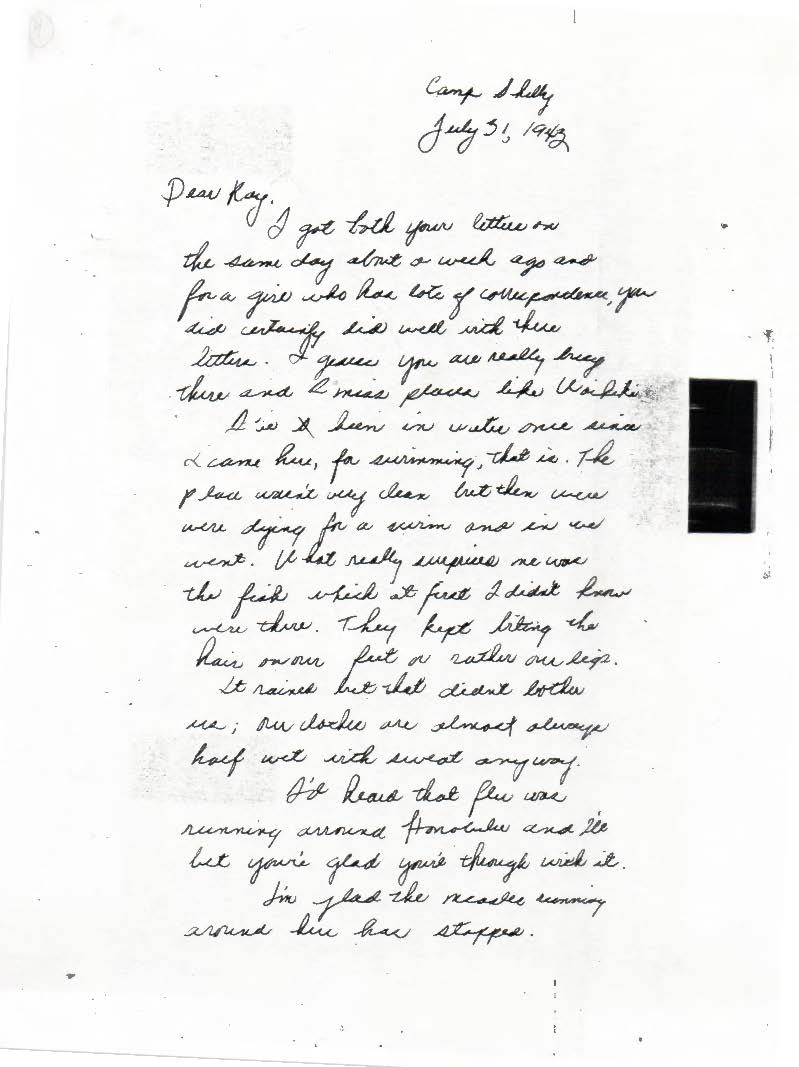 Camp Shelby
July 31, 1943
Dear Kay.
I got both your letters on
the same day about a week ago and
for a girl who has lots of correspondence, you
did certainly did well with these
letters. I guess you are really busy
there and I miss places like Waikiki.
I've been in water once since
I came here, for swimming, that is. The
place wasn't very clean but then were
were dying for a swim and in we
went. What really surprised me was
the fish which at first I didn't know
were there. They kept biting the
hair on our feet or rather our legs.
It rained but that didn't bother
us; our clothes are almost always
half wet with sweat anyway.
I'd heard that flu was
running arround Honolulu and I'll
bet you're glad you're through with it.
I'm glad the measles running
around here has stopped.